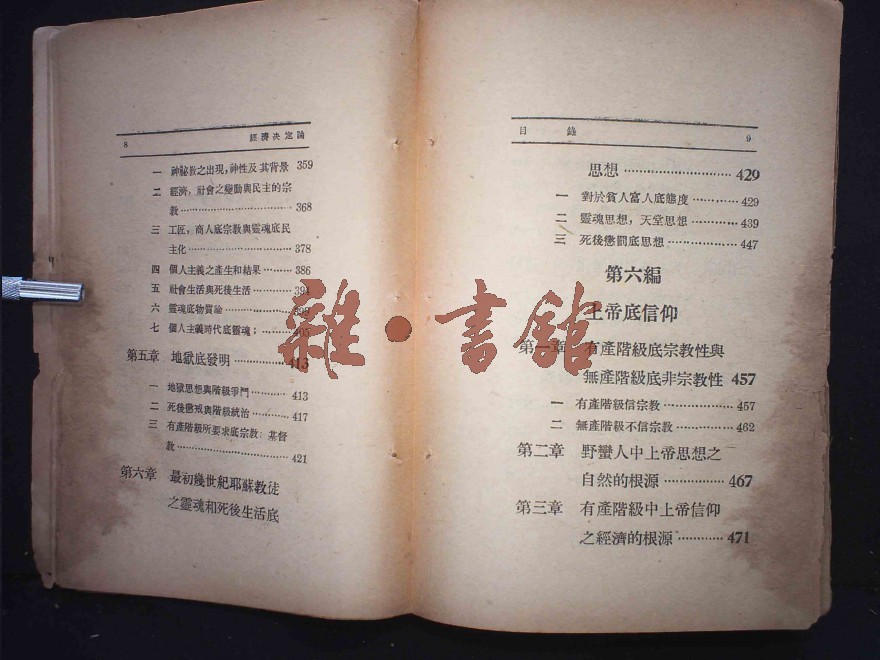 8 經濟決定論
一 神秘教之出現,神性及其背景 359
二 經濟,社會之變動與民主的宗
教………………………… 368
三 工匠,商人底宗教與靈魂底民
主化……………………… 378
四 個人主義之產生和結果……… 386
五 社會生活與死後生活………… 394
六 靈魂底物質論………………… 399
七 個人主義時代底靈魂;……… 405
第五章 地獄底發明……………… 413
一 地獄思想與階級爭鬥………… 413
二 死後懲戒與階級統治………… 417
三 有產階級所要求底宗教:基督
教………………………… 421
第六章 最初幾世紀耶蘇教徒
之靈魂和死後生活底
目 錄 9
思想……………………… 429
一 對於貧人富人底態度………… 429
二 靈魂思想,天堂思想………… 439
三 死後懲罰底思想……………… 447
第六編
上帝底信仰
第一章 有產階級底宗教性與
無產階級底非宗教性 457
一 有產階級信宗教……………… 457
二 無產階級不信宗教…………… 462
第二章 野蠻人中上帝思想之
自然的根源……………… 467
第三章 有產階級中上帝信仰
之經濟的根源…………… 471
雜·書館